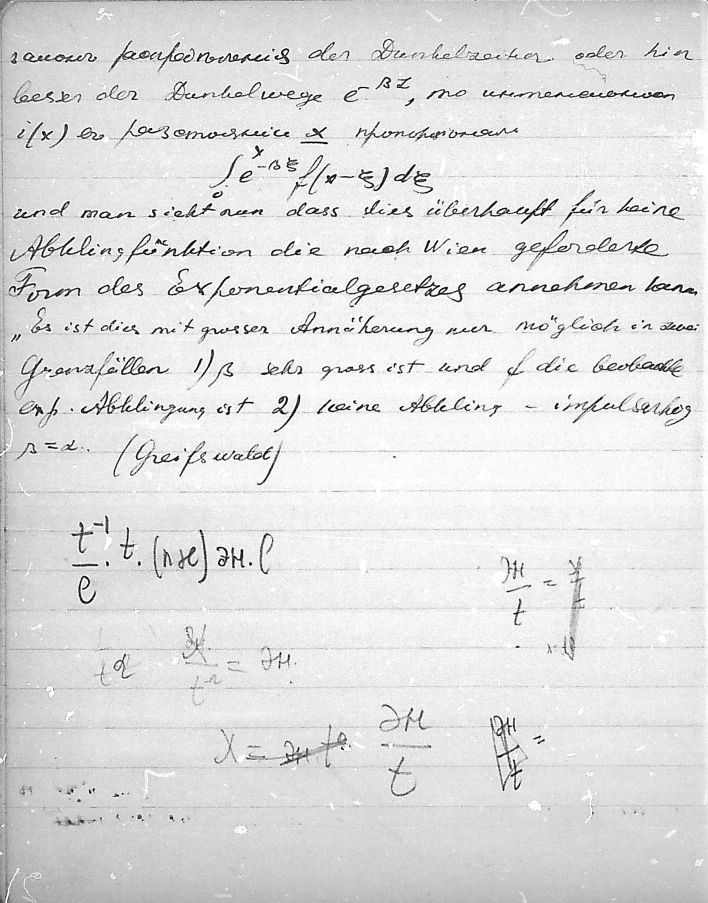 закон распределения der Dunkelzeiten oder hier
besser der Dunkelwege e^{-βx}, то интенсивность
i(x) в расстоянии x пропорционален
∫_0^x e^{-βξ} f(x-ξ) dξ
und man sieht nun dass dies überhaupt für keine
Abklingfunktion die nach Wien geforderte
Form des Exponentialgesetzes annehmen kann
„Es ist dies mit grosser Annäherung nur möglich in zwei
Grenzfällen 1) β sehr gross ist und f die beobachtete
exp. Abklingung ist 2) keine Abkling – impulsartig
β=α. (Greifswald)
t^{-1}/e · t. (пже) эн. l
эн/t = x/t
1/t² x/t^{-2} = эн.
x = эн/t
эн/t =